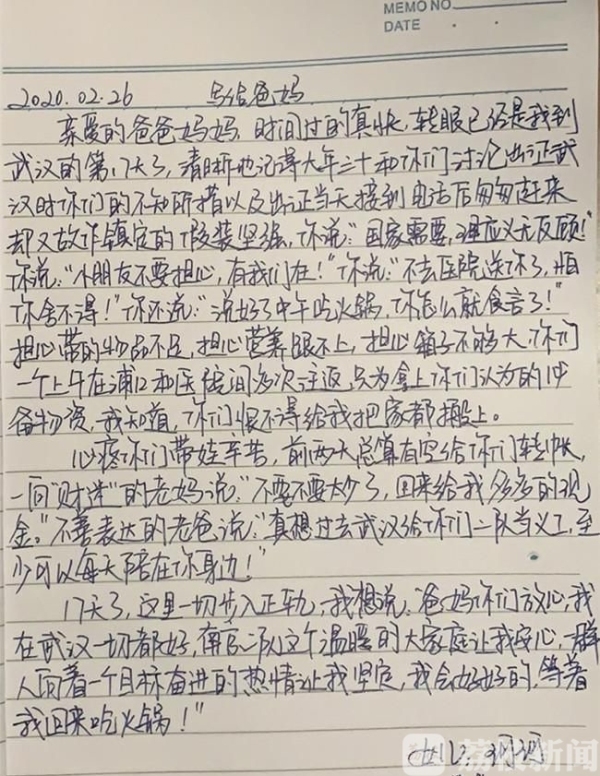 MEMO NO.
DATE
2020.02.26 写给爸妈
亲爱的爸爸妈妈,时间过的真快,转眼已经是我到
武汉的第17天了,清晰地记得大年三十和你们讨论出征武
汉时你们的不知所措以及出征当天接到电话后匆匆赶来
却又故作镇定的假装坚强,你说:"国家需要,理应义无反顾!"
你说:"小朋友不要担心,有我们在!"你说:"不去医院送你了,怕
你舍不得!"你还说:"说好了中午吃火锅,你怎么就食言了!"
担心带的物品不足,担心营养跟不上,担心箱子不够大,你们
一个上午在浦口和医院间多次往返,只为拿上你们认为的
备物资,我知道,你们恨不得给我把家都搬上。
心疼你们带娃辛苦,前两天总算有空给你们转帐,
一向"财迷"的老妈说:"不要不要太少了,回来给我多多的现
金。"不善表达的老爸说:"真想过去武汉给你们二队当义工,至
少可以每天陪在你身边!"
17天了,这里一切步入正轨,我想说:"爸妈你们放心,我
在武汉一切都好,南医二队这个温暖的大家庭让我安心,一群
人向着一个目标奋进的热情让我坚定,我会好好的,等着
我回来吃火锅!"
荔枝新闻